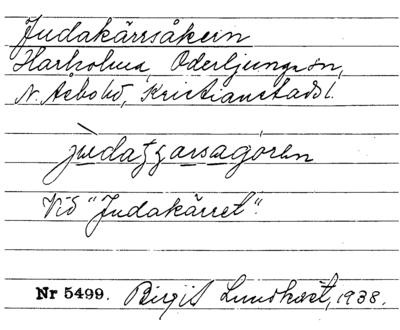 Judakärrsåkern
Harholma, Oderljunga sn,
N. Åsbo hd, Kristianstads l.
Vid "Judakärret".
Nr 5499. Birgit Lundkvist, 1938.